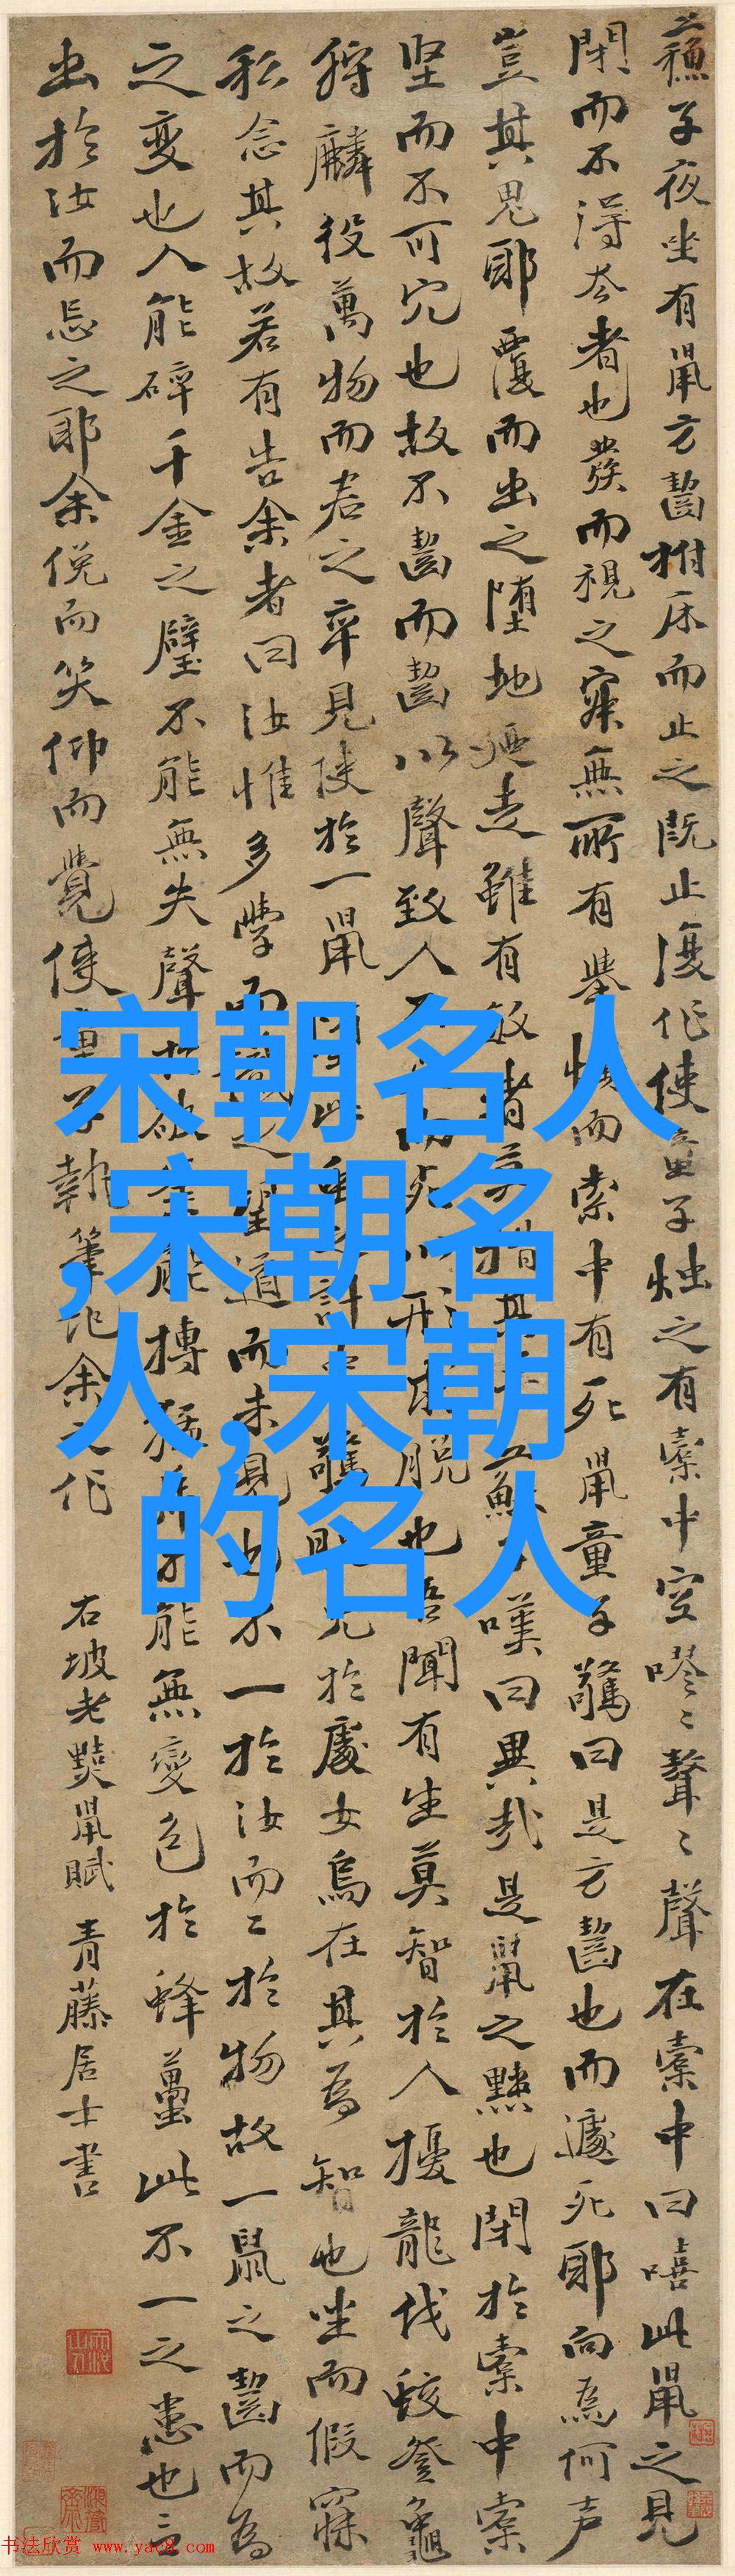 蘓子夜坐有鼠方齧拊床而止之既止復作使童子烛之有橐中空嘐〻聱〻聲在橐中曰嘻此鼠之見
閉而不得去者也發而視之寂無所有舉燭而索中有死鼠童子驚曰是方齧也而遽死耶向為何声
豈其鬼耶覆而出之墮地迺走雖有敏者莫措其手蘇子嘆曰異哉是鼠之黠也閉於橐中橐
坚而不可穴也故不齧而齧以聲致人不死而死以形求脱也吾聞有生莫智於人擾龍伐蛟登龜
狩麟役萬物而君之卒見使於一鼠此虫之計中驚脱兔於處女烏在其為智也坐而假寐
私念其故若有告余者曰汝惟多學而識之望道而未見也不一於汝而二於物故一鼠之齧而為
之变也人能碎千金之璧不能無失聲於破釜能搏猛虎不能無變色於蜂蠆此不一之患也言
出於汝而忘之耶余俛而笑仰而覺使童子執筆记余之作 右坡老黠鼠賦 青藤居士書
宋朝名人
,宋朝名
人,宋朝
的名人
书法欣赏 www.yac8.com